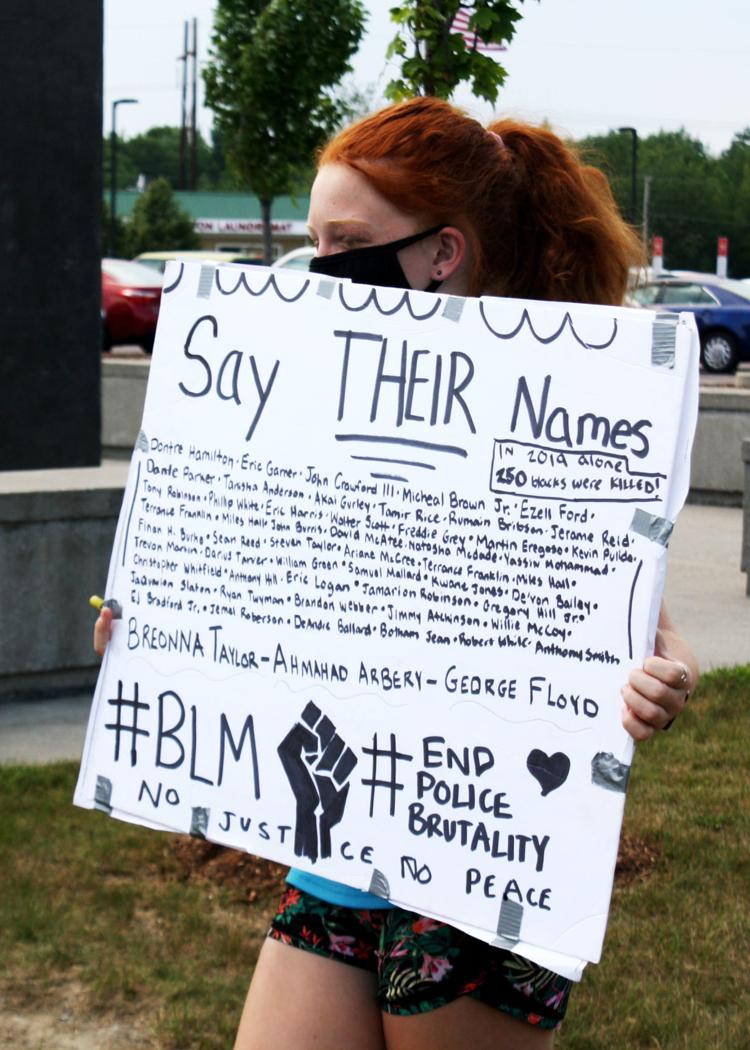 ON LAUNDROMAT
Say THEIR Names
IN 2019 alone
250 blacks were KILLED!
Dontre Hamilton • Eric Garner • John Crawford III • Micheal Brown Jr. • Ezell Ford •
Dante Parker • Tanisha Anderson • Akai Gurley • Tamir Rice • Rumain Brisbon • Jerame Reid •
Tony Robinson • Phillip White • Eric Harris • Walter Scott • Freddie Grey • Martin Eregoso • Kevin Pulido •
Terrance Franklin • Miles Hall • John Burris • David McAtee • Natosha McDade • Yassin Mohammad •
Finan H. Burhe • Sean Reed • Steven Taylor • Ariane McCree • Terrance Franklin • Miles Hall •
Trevon Martin • Darius Tarver • William Green • Samuel Mallard • Kwane Jones • De'von Bailey •
Christopher Whitfield • Anthony Hill • Eric Logan • Jamarion Robinson • Gregory Hill Jr •
Jaquavion Slaton • Ryan Twyman • Brandon Webber • Jimmy Atchinson • Willie McCoy •
EJ Bradford Jr. • Jemel Roberson • DeAndre Ballard • Botham Jean • Robert White • Anthony Smith
BREONNA TAYLOR - AHMAHAD ARBERY - GEORGE FLOYD
#BLM # END POLICE BRUTALITY
NO JUSTICE NO PEACE